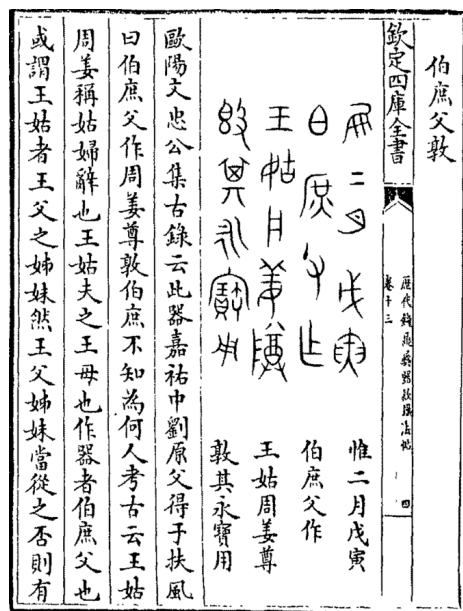 伯庶父敦
欽定四庫全書
歷代鐘鼎彝器款識法帖
卷十三
四
惟二月戊寅
伯庶父作
王姑周姜尊
敦其永寶用
歐陽文忠公集古錄云此器嘉祐中劉原父得于扶風
曰伯庶父作周姜尊敦伯庶不知為何人考古云王姑
周姜稱姑婦辭也王姑夫之王母也作器者伯庶父也
或謂王姑者王父之姊妹然王父姊妹當從之否則有